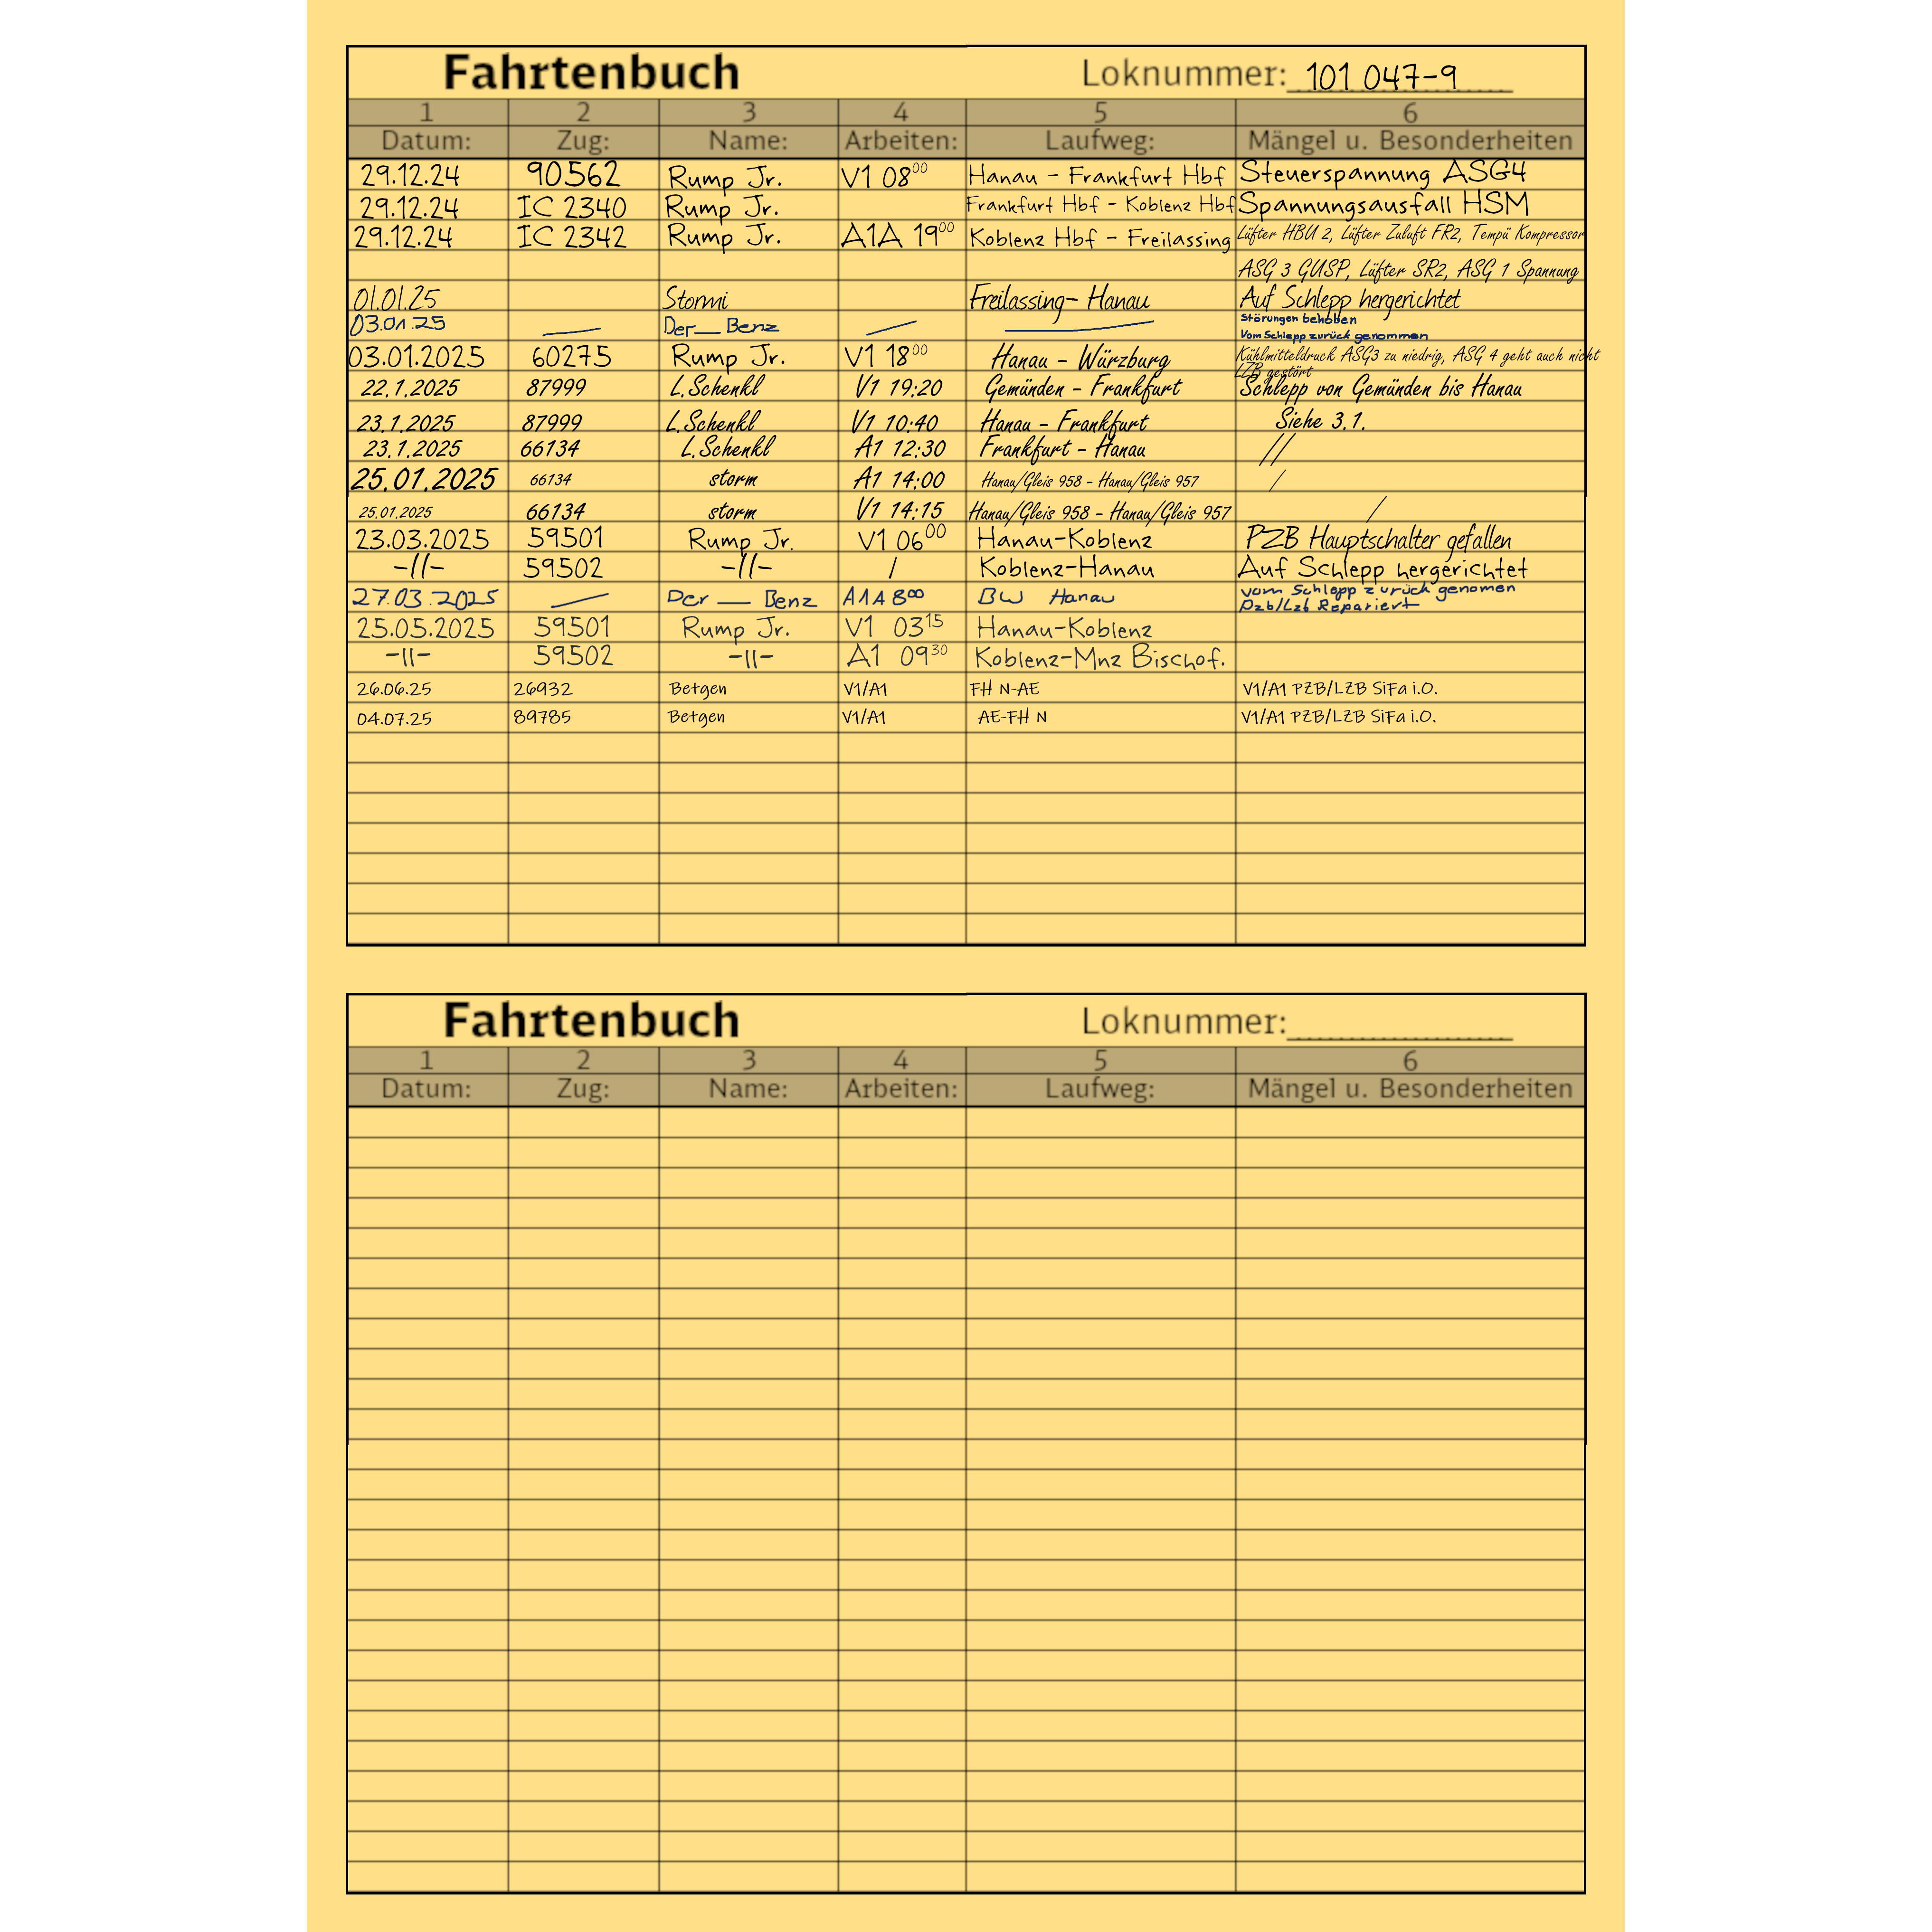 Fahrtenbuch Loknummer: 101 047-9
1 2 3 4 5 6
Datum: Zug: Name: Arbeiten: Laufweg: Mängel u. Besonderheiten
29.12.24 90562 Rump Jr. V1 08 00 Hanau - Frankfurt Hbf Steuerspannung ASG4
29.12.24 IC 2340 Rump Jr. Frankfurt Hbf - Koblenz Hbf Spannungsausfall HSM
29.12.24 IC 2342 Rump Jr. A1A 19 00 Koblenz Hbf - Freilassing Lüfter HBU 2, Lüfter Zuluft FR2, Tempü Kompressor
ASG 3 GUSP, Lüfter SR2, ASG 1 Spannung
01.01.25 Stormi Freilassing- Hanau Auf Schlepp hergerichtet
03.01.25 — Der__Benz — — Störungen behoben
Vom Schlepp zurück genommen
03.01.2025 60275 Rump Jr. V1 18 00 Hanau - Würzburg Kühlmitteldruck ASG3 zu niedrig, ASG 4 geht auch nicht
LZB gestört
22.1.2025 87999 L.Schenkl V1 19:20 Gemünden - Frankfurt Schlepp von Gemünden bis Hanau
23.1.2025 87999 L.Schenkl V1 10:40 Hanau - Frankfurt Siehe 3.1.
23.1.2025 66134 L.Schenkl A1 12:30 Frankfurt - Hanau //
25.01.2025 66134 storm A1 14:00 Hanau/Gleis 958 - Hanau/Gleis 957 /
25.01.2025 66134 storm V1 14:15 Hanau/Gleis 958 - Hanau/Gleis 957 /
23.03.2025 59501 Rump Jr. V1 06 00 Hanau-Koblenz PZB Hauptschalter gefallen
-//- 59502 -//- / Koblenz-Hanau Auf Schlepp hergerichtet
27.03.2025 — Der __ Benz A1A 8 00 BW Hanau vom Schlepp zurück genomen
Pzb/Lzb Repariert
25.05.2025 59501 Rump Jr. V1 03 15 Hanau-Koblenz
-||- 59502 -||- A1 09 30 Koblenz-Mnz Bischof.
26.06.25 26932 Betgen V1/A1 FH N-AE V1/A1 PZB/LZB SiFa i.O.
04.07.25 89785 Betgen V1/A1 AE-FH N V1/A1 PZB/LZB SiFa i.O.
Fahrtenbuch Loknummer:
1 2 3 4 5 6
Datum: Zug: Name: Arbeiten: Laufweg: Mängel u. Besonderheiten